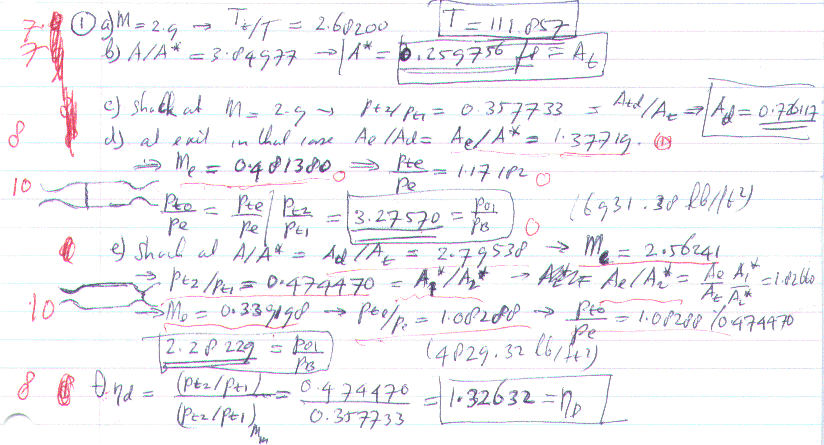 7 ① a) M = 2.9 → Tt/T = 2.68200 T = 111.857
7 b) A/A* = 3.84977 → A* = 0.259756 ft² = At
c) shock at M = 2.9 → Pt2/Pt1 = 0.357733 = Atd/At ⇒ Ad = 0.726117
8 d) at exit in that case Ae/Ad = Ae/A* = 1.37719.
⇒ Me = 0.481380 ⇒ Pte/Pe = 1.17182
10 Pto/Pe = Pte/Pe / Pt2/Pt1 = 3.27570 = P01/PB (6931.38 lb/ft²)
e) Shock at A/A* = Ad/At = 2.79538 → Me = 2.56241
→ Pt2/Pt1 = 0.474470 = A1*/A2* → Ae/A2* = Ae/At A1*/A2* = 1.82660
10 → Me = 0.339198 → Pte/Pe = 1.08288 → Pto/Pe = 1.08288/0.474470
2.28229 = P01/PB (4829.32 lb/ft²)
8 f. ηd = (Pt2/Pt1)/(Pt2/Pt1)M∞ = 0.474470/0.357733 = 1.32632 = ηD